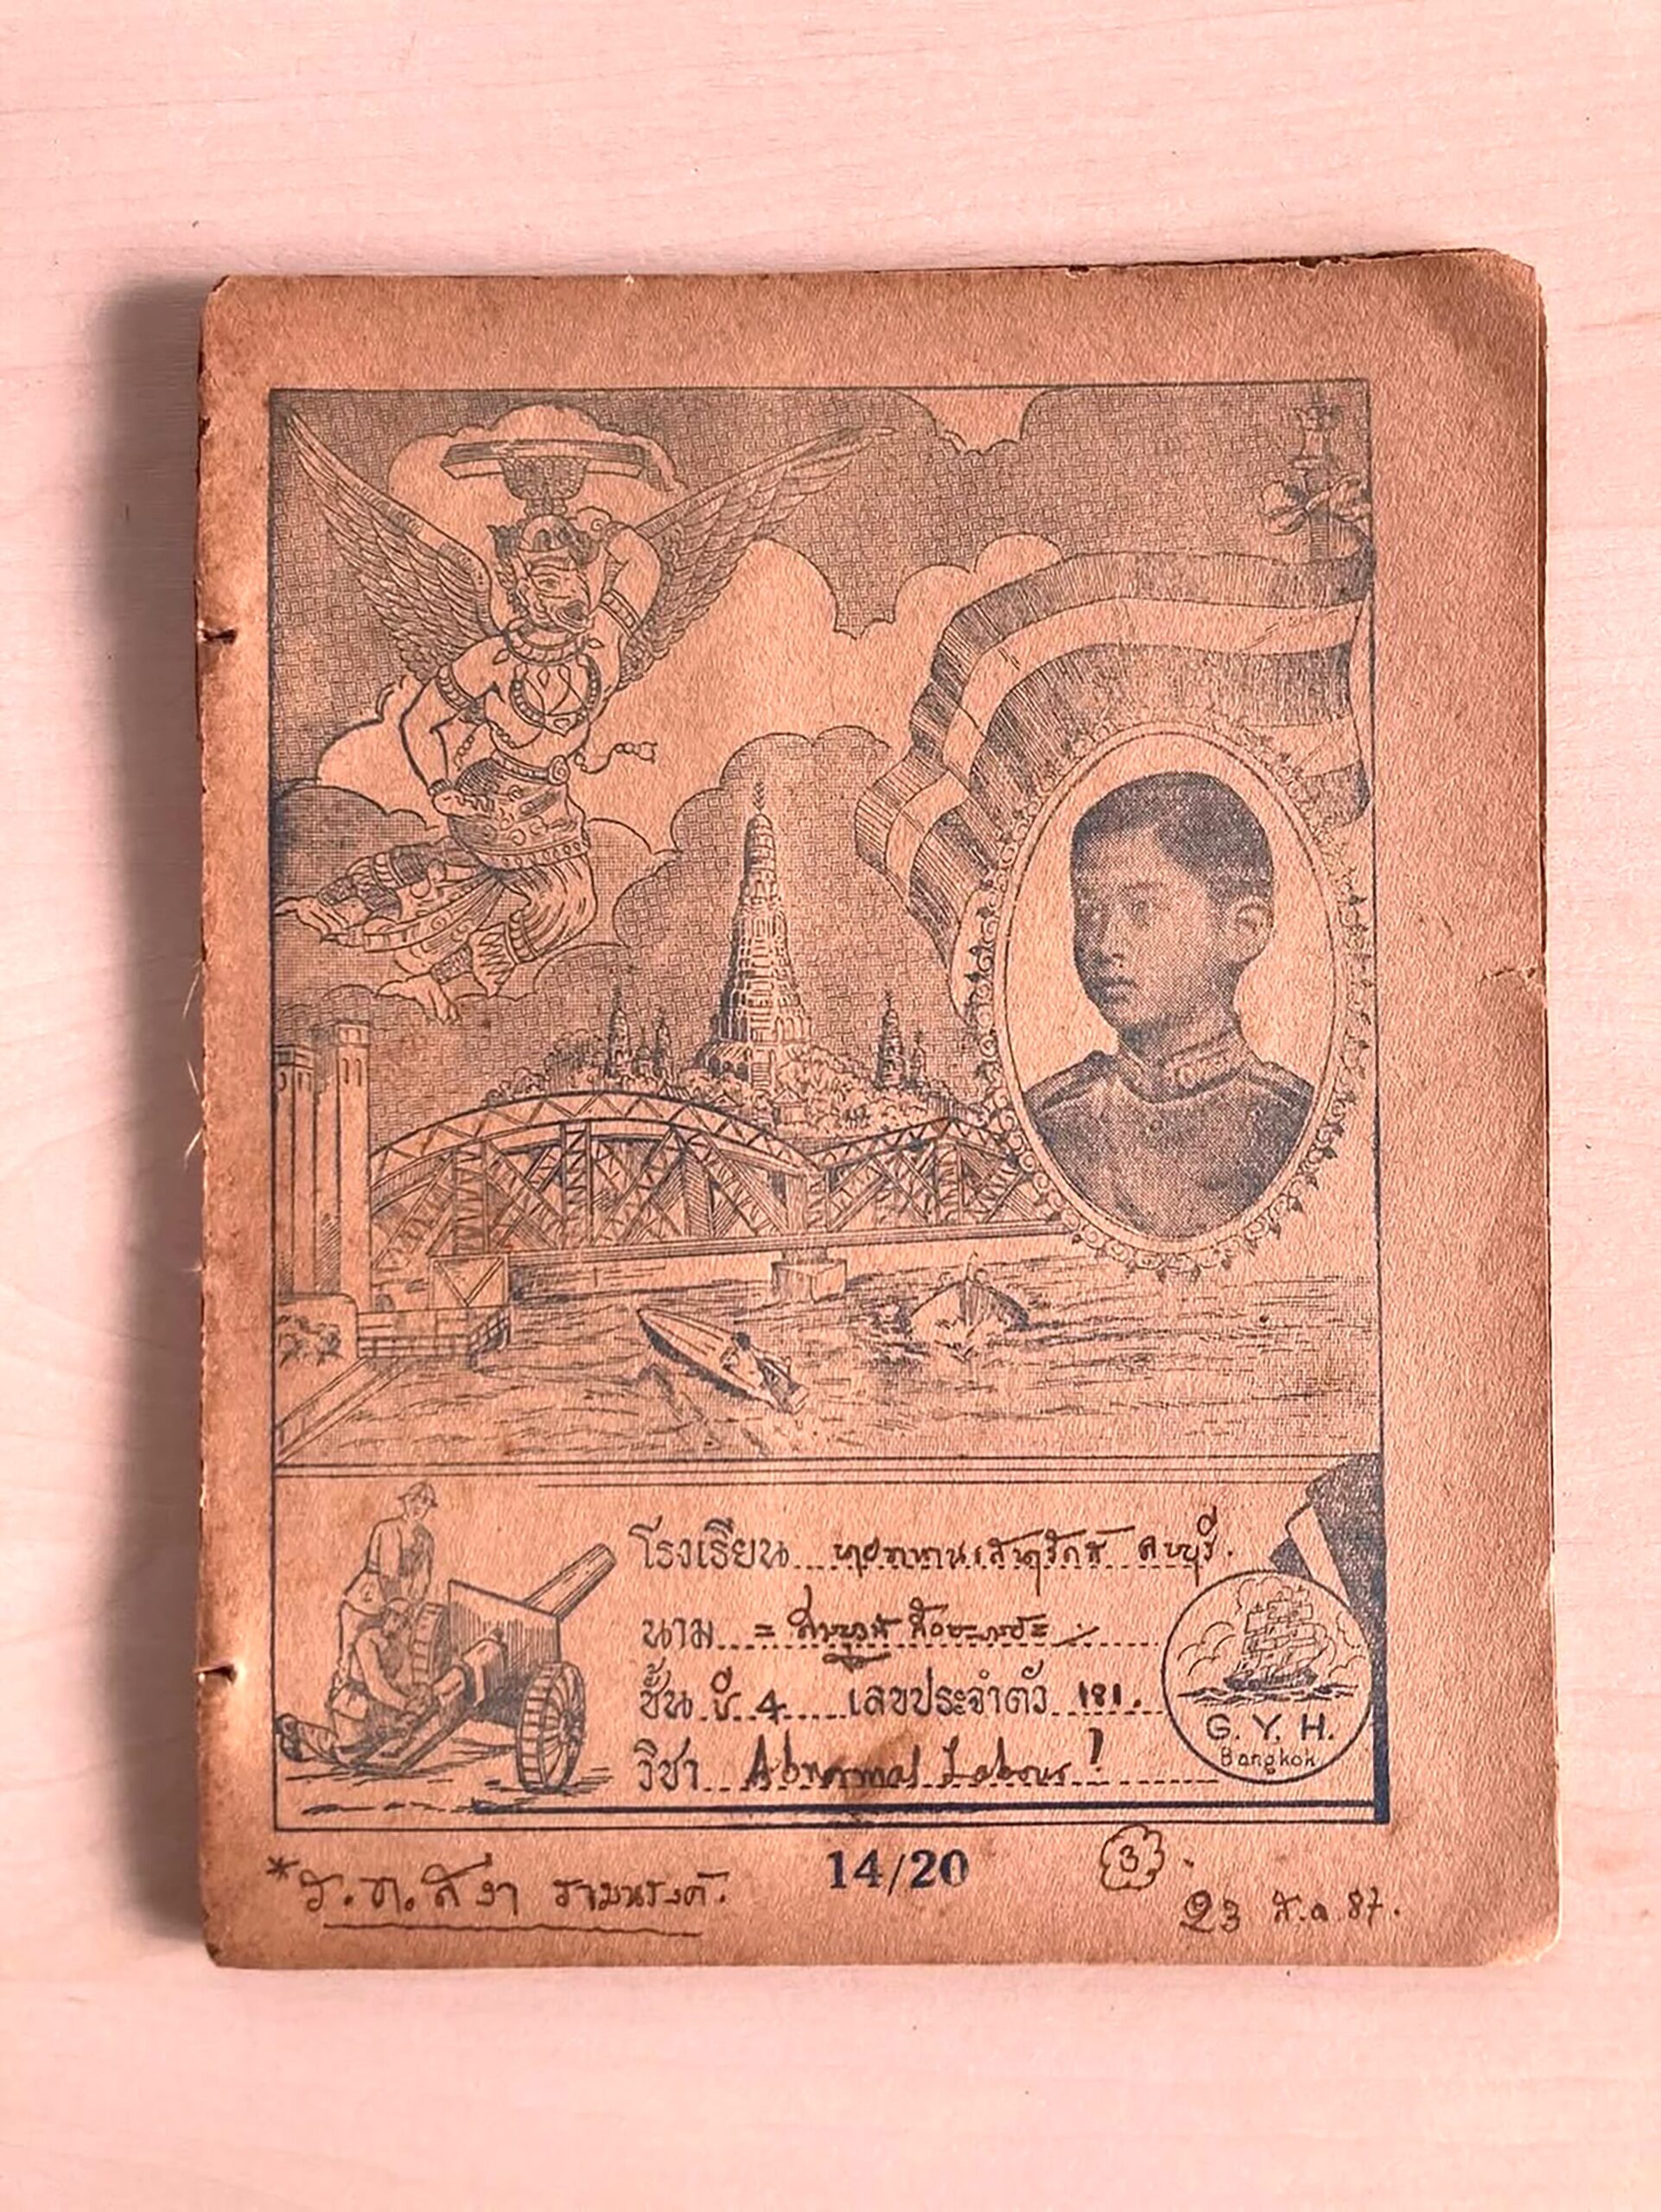 โรงเรียน
นาม
ชั้น ปี 4 เลขประจำตัว 181.
วิชา Abnormal Labour ?
G. Y. H.
Bangkok
14/20
3
* ร.ท. สงา รามนรงค์.
23 ส.ค. 87.